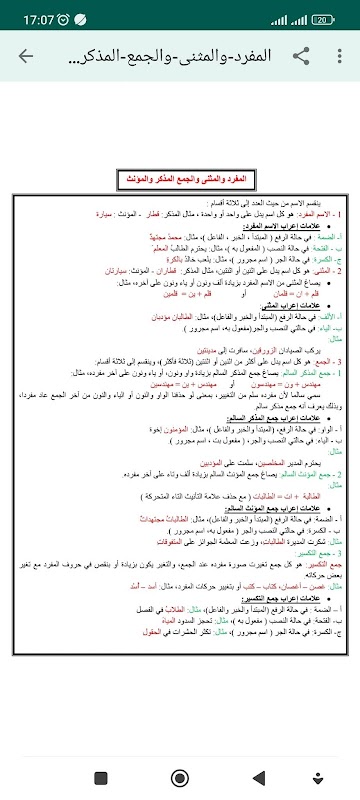 17:07
20
المفرد-والمثنى-والجمع-المذكر...
المفرد والمثنى والجمع المذكر والمؤنث
ينقسم الاسم من حيث العدد إلى ثلاثة أقسام :
1 - الاسم المفرد: هو كل اسم يدل على واحد أو واحدة ، مثال المذكر: قطار - المؤنث : سيارة
• علامات إعراب الاسم المفرد:
أ- الضمة : في حالة الرفع ( المبتدأ ، الخبر ، الفاعل )، مثال: محمدٌ مجتهدٌ
ب- الفتحة: في حالة النصب ( المفعول به )، مثال: يحترم الطالبُ المعلمَ
ج- الكسرة: في حالة الجر ( اسم مجرور )، مثال: يلعب خالدٌ بالكرةِ
2 - المثنى: هو كل اسم يدل على اثنين أو اثنتين، مثال المذكر: قطاران - المؤنث: سيارتان
يصاغ المثنى من الاسم المفرد بزيادة ألف ونون أو ياء ونون على آخره، مثال:
قلم + ان = قلمان أو قلم + ين = قلمين
• علامات إعراب المثنى:
أ- الألف: في حالة الرفع (المبتدأ والخبر والفاعل )، مثال: الطالبان مؤدبان
ب- الياء: في حالتي النصب والجر(مفعول به، اسم مجرور ).
مثال:
يركب الصيادان الزورقين، سافرت إلى مدينتين
3 - الجمع: هو كل اسم يدل على أكثر من اثنين أو اثنتين (ثلاثة فأكثر)، وينقسم إلى ثلاثة أقسام:
1 - جمع المذكر السالم: يصاغ جمع المذكر السالم بزيادة واو ونون، أو ياء ونون على آخر مفرده، مثال :
مهندس + ون = مهندسون أو مهندس + ين = مهندسين
سمي سالما لأن مفرده سلم من التغيير، بمعنى لو حذفنا الواو والنون أو الياء والنون من آخر الجمع عاد مفردا،
وبذلك يعرف أنه جمع مذكر سالم
• علامات إعراب جمع المذكر السالم:
أ - الواو: في حالة الرفع، (المبتدأ والخبر والفاعل )، مثال: المؤمنون إخوة
ب - الياء: في حالتي النصب والجر ، ( مفعول به ، اسم مجرور ).
مثال:
يحترم المدير المخلصين، سلمت على المؤدبين
2 - جمع المؤنث السالم: يصاغ جمع المؤنث السالم بزيادة ألف وتاء على آخر مفرده.
مثال:
الطالبة + ات = الطالبات ( مع حذف علامة التأنيث التاء المتحركة )
• علامات إعراب جمع المؤنث السالم:
أ - الضمة: في حالة الرفع (المبتدأ والخبر والفاعل )، مثال: الطالباتُ مجتهداتٌ
ب - الكسرة: في حالتي النصب والجر (مفعول به، اسم مجرور ).
مثال: شكرت المديرة الطالباتِ، وزعت المعلمة الجوائز على المتفوقاتِ
3 - جمع التكسير :
جمع التكسير: هو كل جمع تغيرت صورة مفرده عند الجمع، والتغيير يكون بزيادة أو بنقص في حروف المفرد مع تغيير
بعض حركاته.
مثال: غصن – أغصان، كتاب – كتب أو بتغيير حركات المفرد، مثال: أسد – أُسْد
• علامات إعراب جمع التكسير:
أ – الضمة : في حالة الرفع (المبتدأ والخبر والفاعل)، مثال: الطلابُ في الفصل
ب- الفتحة: في حالة النصب ( مفعول به )، مثال: تحجز السدود المياهَ
ج- الكسرة: في حالة الجر ( اسم مجرور )، مثال: تكثر الحشرات في الحقولِ